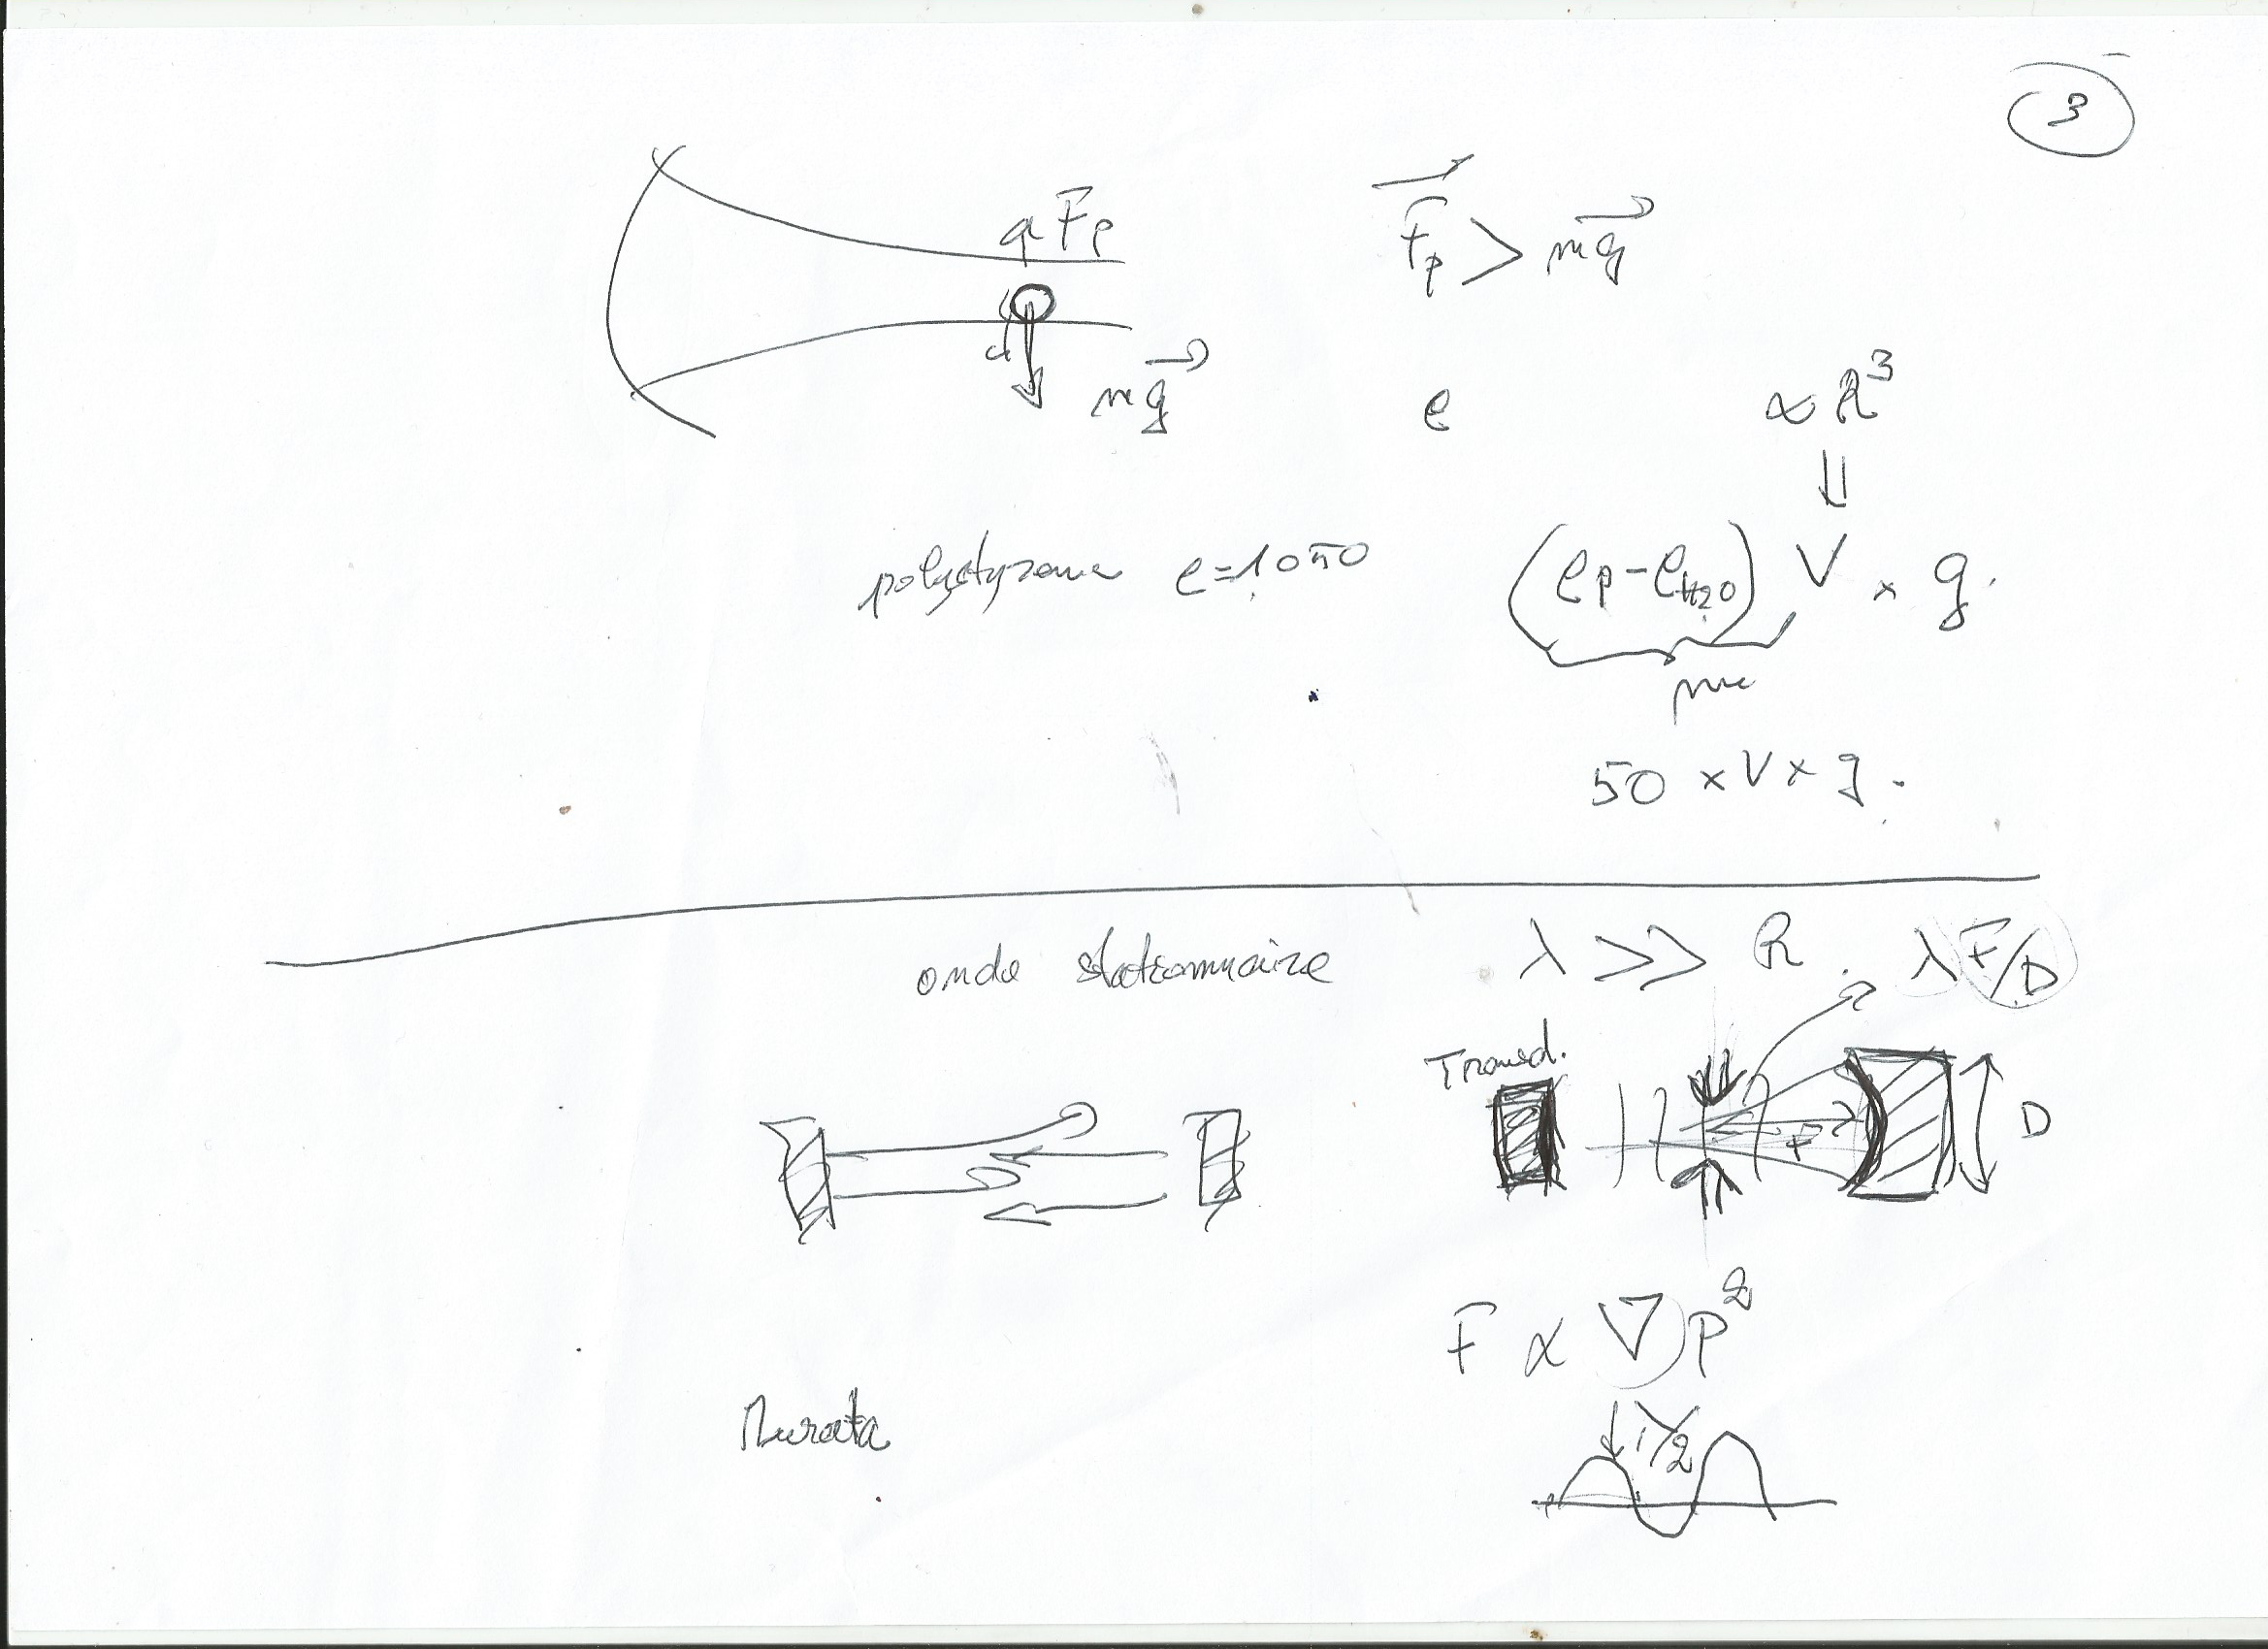 3
F_p
F⃗_p > mg⃗
mg⃗
ρ
∝ R³
⇓
polystyrene ρ=1050
(ρ_p - ρ_H₂O) V × g.
50 × V × g.
onde stationnaire
λ >> R . λ F/D
Transd.
F
D
F ∝ ∇ P²
λ/2
Murata